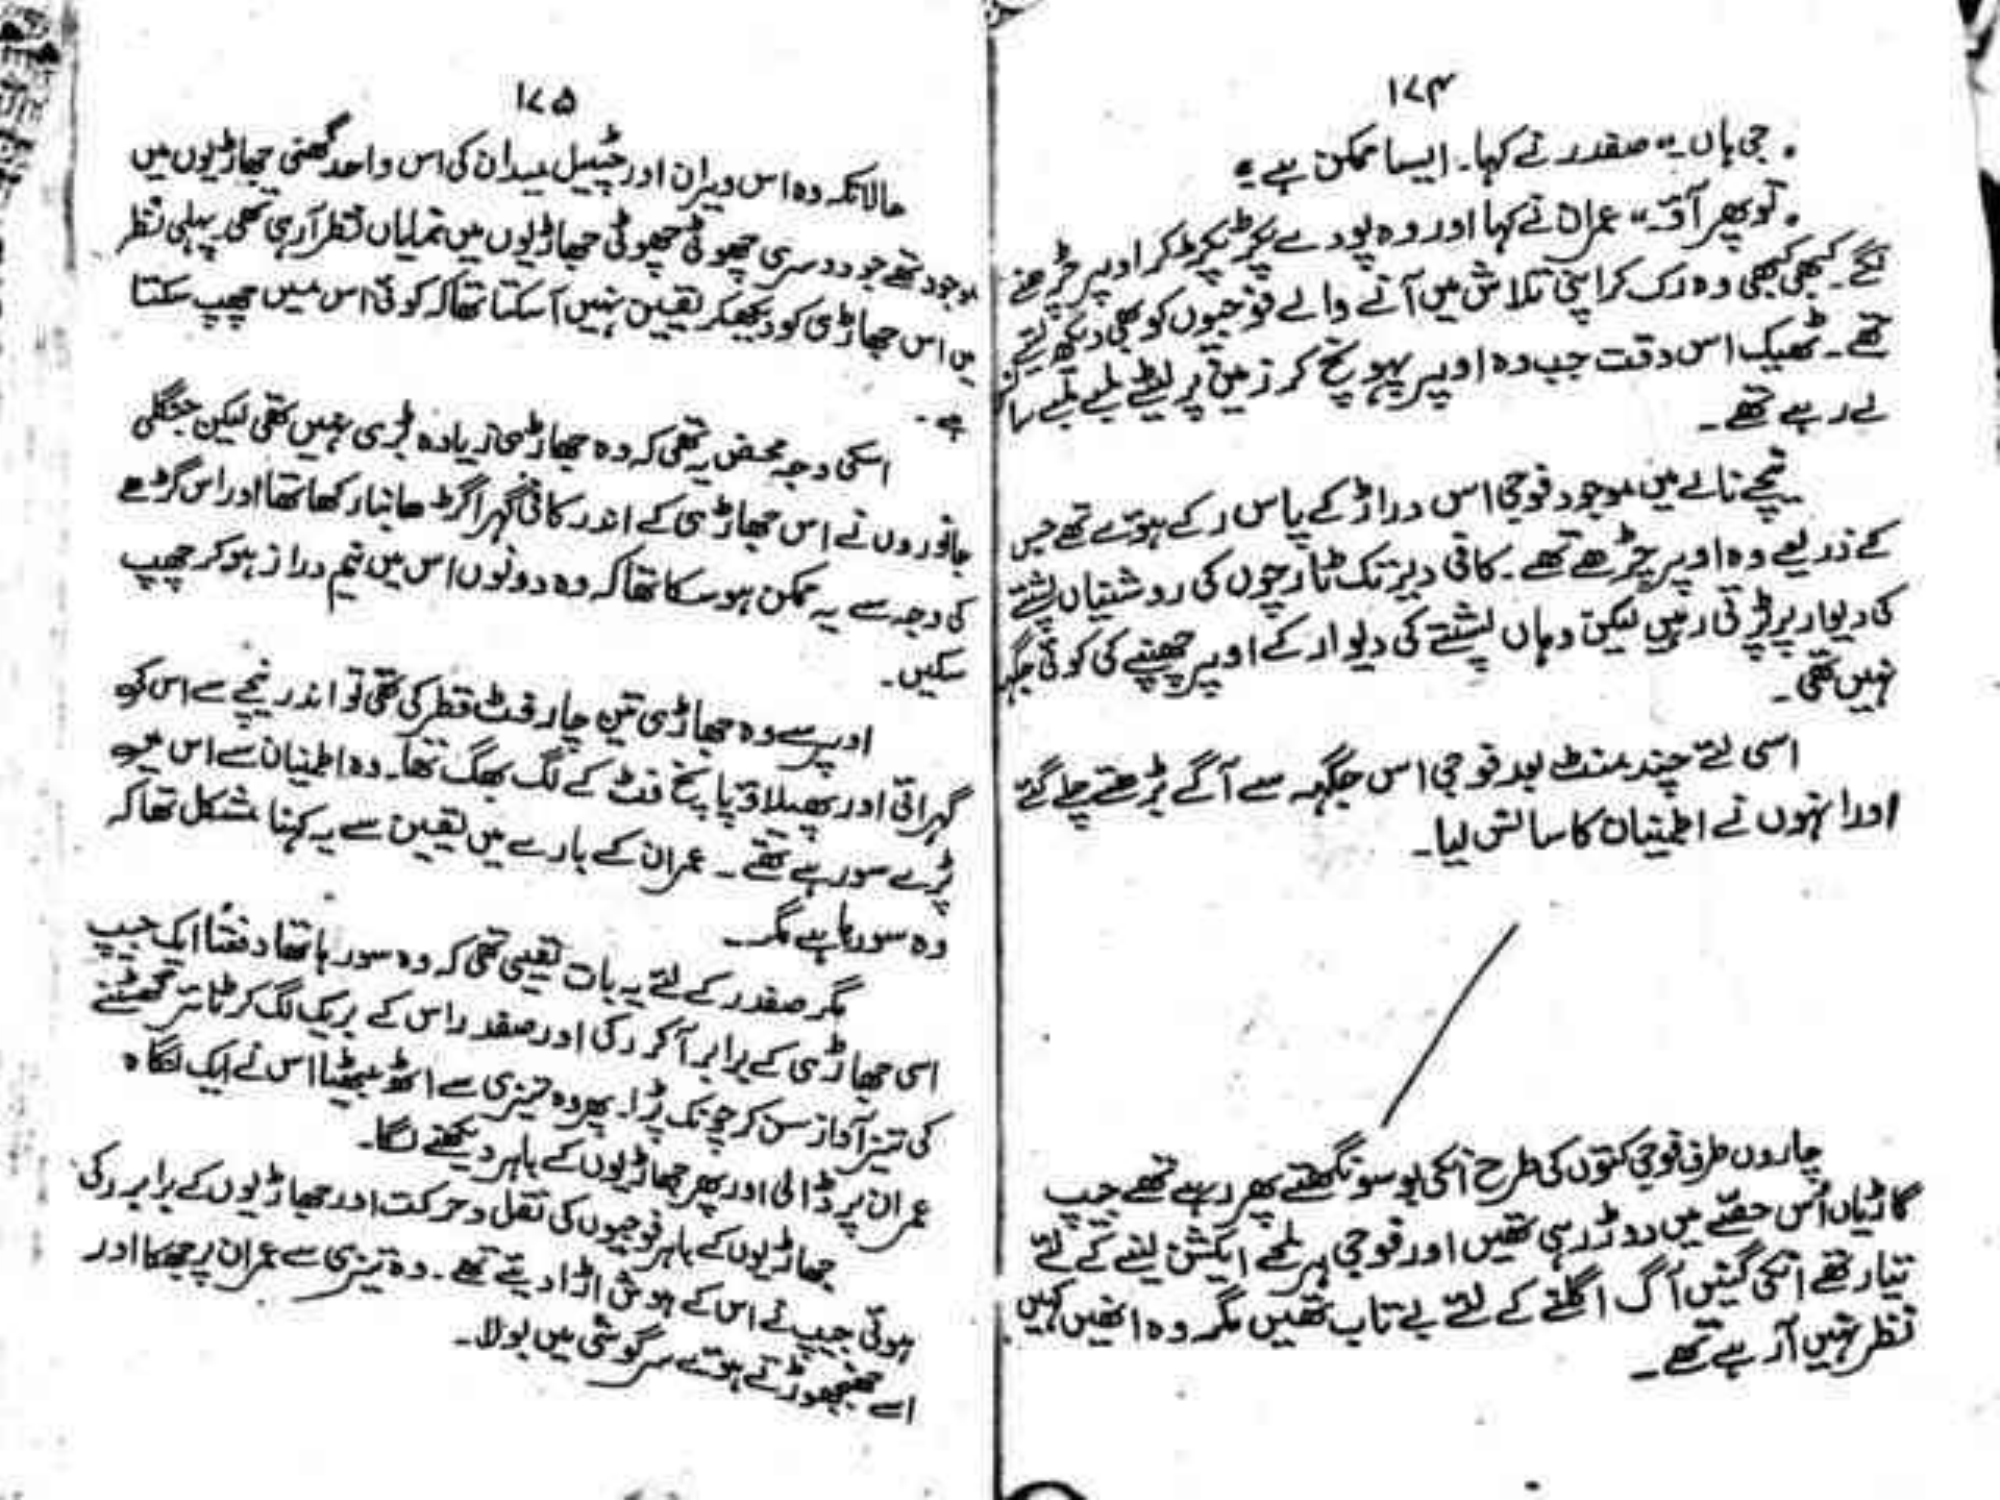 ۱۷۴
۔ جی ہاں ۔" صفدر نے کہا۔ ایسا ممکن ہے ۔"
۔ تو پھر آؤ ۔" عمران نے کہا اور وہ پودے پکڑ پکڑ کر اوپر چڑھنے
لگے ۔ کبھی کبھی وہ رک کر اپنی تلاش میں آنے والے فوجیوں کو بھی دیکھ لیتے
تھے ۔ ٹھیک اس وقت جب وہ اوپر پہونچ کر زمین پر لیٹے لمبے لمبے
لے رہے تھے ۔
نیچے نالے میں موجود فوجی اس دراڑ کے پاس رکے ہوئے تھے جس
کے ذریعے وہ اوپر چڑھے تھے ۔ کافی دیر تک ٹارچوں کی روشنیاں پشتے
کی دیوار پر پڑتی رہیں لیکن وہاں پشتے کی دیوار کے اوپر چھپنے کی کوئی جگہ
نہیں تھی ۔
اسی لئے چند منٹ بعد فوجی اس جگہہ سے آگے بڑھتے چلے گئے
اور انہوں نے اطمینان کا سانس لیا ۔
چاروں طرف فوجی کتوں کی طرح انکی بو سونگھتے پھر رہے تھے جیپ
گاڑیاں اُس حصّے میں دوڑ رہی تھیں اور فوجی ہر لمحے ایکشن لینے کے لئے
تیار تھے انکی گنیں آگ اگلنے کے لئے بے تاب تھیں مگر وہ انھیں کہیں
نظر نہیں آ رہے تھے ۔
۱۷۵
حالانکہ وہ اس ویران اور چٹیل میدان کی اس واحد گھنی جھاڑیوں میں
موجود تھے جو دوسری چھوٹی چھوٹی جھاڑیوں میں نمایاں نظر آ رہی تھی ۔ پہلی نظر
میں اس جھاڑی کو دیکھکر یقین نہیں آ سکتا تھا کہ کوئی اس میں چھپ سکتا
ہے ۔
اسکی وجہ محض یہ تھی کہ وہ جھاڑی زیادہ بڑی نہیں تھی لیکن جنگلی
جانوروں نے اس جھاڑی کے اندر کافی گہرا گڑھا بنا رکھا تھا اور اس گڑھے
کی وجہ سے یہ ممکن ہو سکا تھا کہ وہ دونوں اس میں نیم دراز ہو کر چھپ
سکیں ۔
اوپر سے وہ جھاڑی تین چار فٹ قطر کی تھی تو اندر نیچے سے اس کی
گہرائی اور پھیلاؤ پانچ فٹ کے لگ بھگ تھا ۔ وہ اطمینان سے اس میں
پڑے سو رہے تھے ۔ عمران کے بارے میں یقین سے یہ کہنا مشکل تھا کہ
وہ سو رہا ہے مگر ۔
مگر صفدر کے لئے یہ بات یقینی تھی کہ وہ سو رہا تھا دفعتاً ایک جیپ
اسی جھاڑی کے برابر آ کر رکی اور صفدر اس کے بریک لگ کر ٹائر گھسٹنے
کی تیز آواز سن کر چونک پڑا ۔ پھر وہ تیزی سے اٹھ بیٹھا اس نے ایک نگاہ
عمران پر ڈالی اور پھر جھاڑیوں کے باہر دیکھنے لگا ۔
جھاڑیوں کے باہر فوجیوں کی نقل و حرکت اور جھاڑیوں کے برابر رکی
ہوئی جیپ نے اس کے ہوش اڑا دیئے تھے ۔ وہ تیزی سے عمران پر جھکا اور
اسے جھنجھوڑتے ہوئے سرگوشی میں بولا ۔